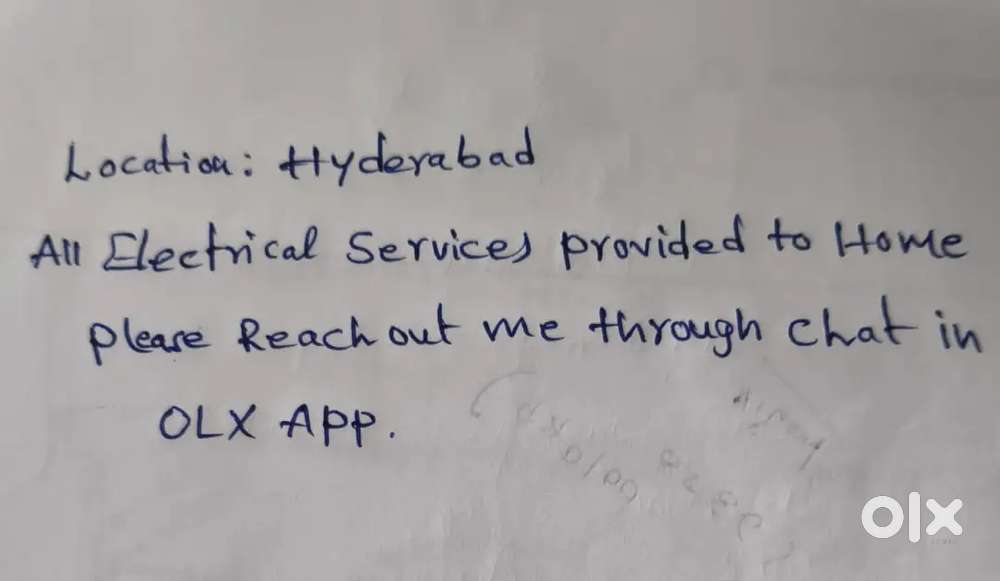 Location: Hyderabad
All Electrical Services provided to Home
please Reach out me through chat in
OLX App.
olx